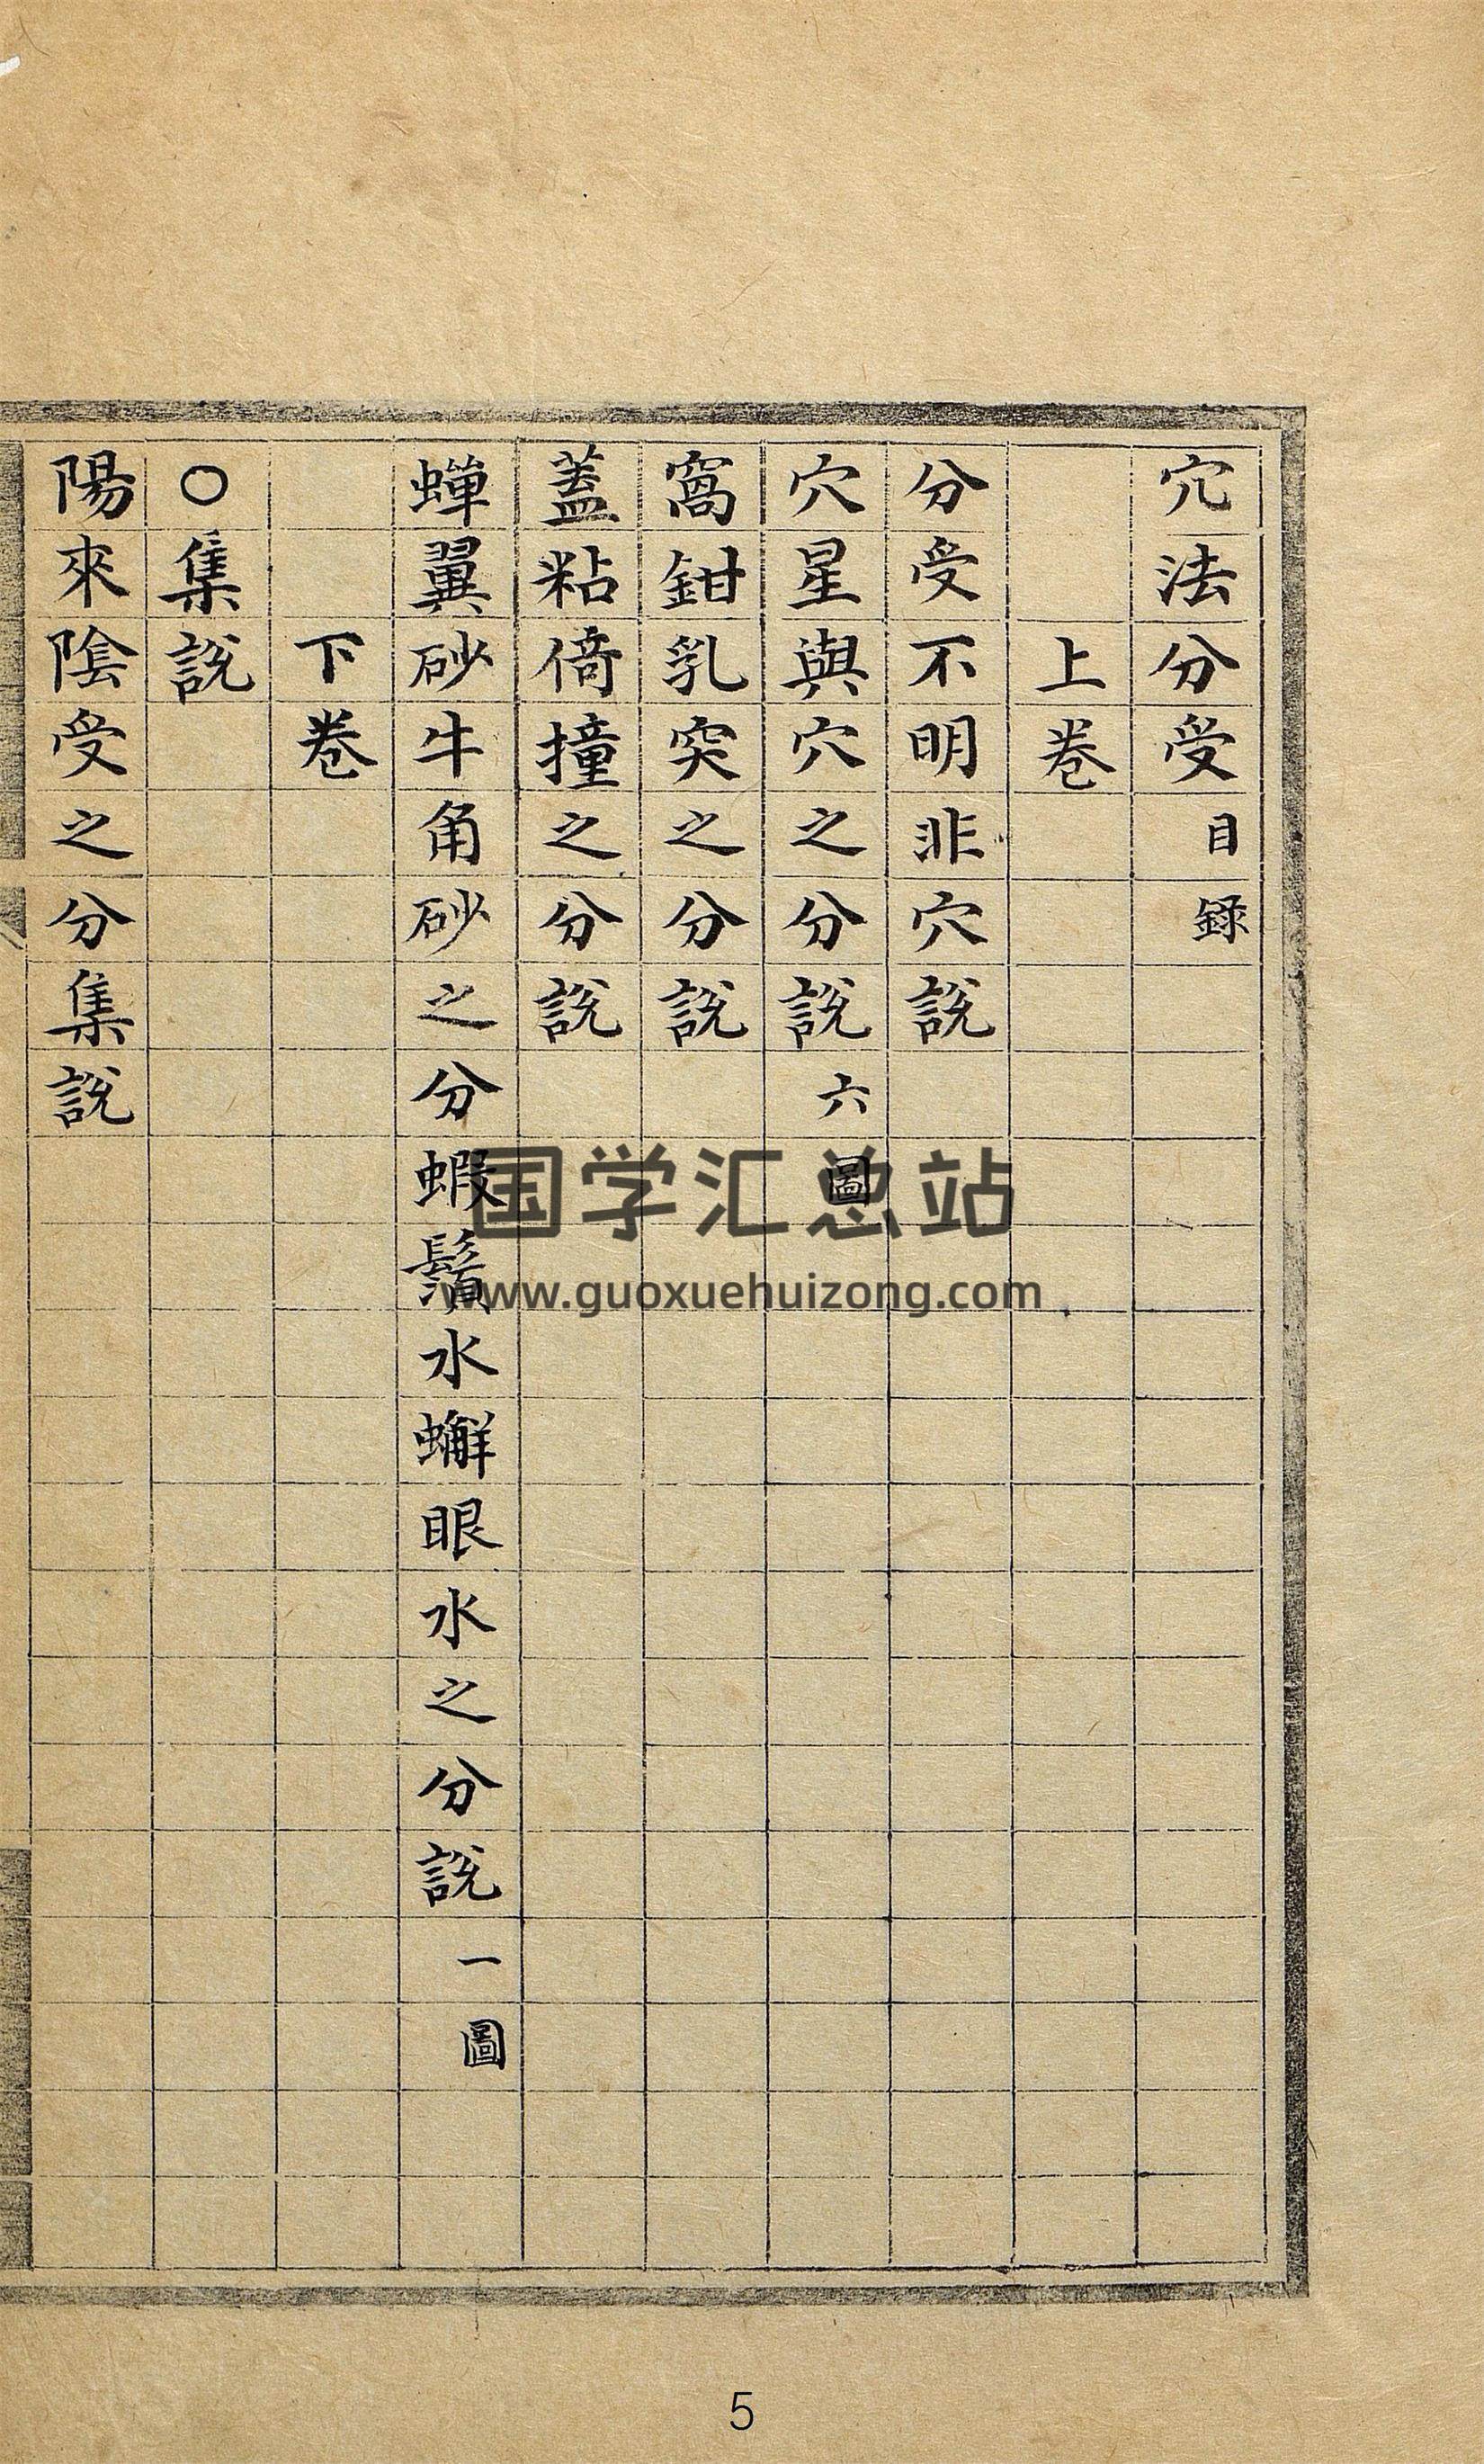 穴法分受目錄
上卷
分受不明非穴說
穴星與穴之分說六圖
窩鉗乳突之分說
蓋粘倚撞之分說
蟬翼砂牛角砂之分蝦鬚水蠏眼水之分說一圖
下卷
○集說
陽來陰受之分集說
国学汇总站
www.guoxuehuizong.com
5